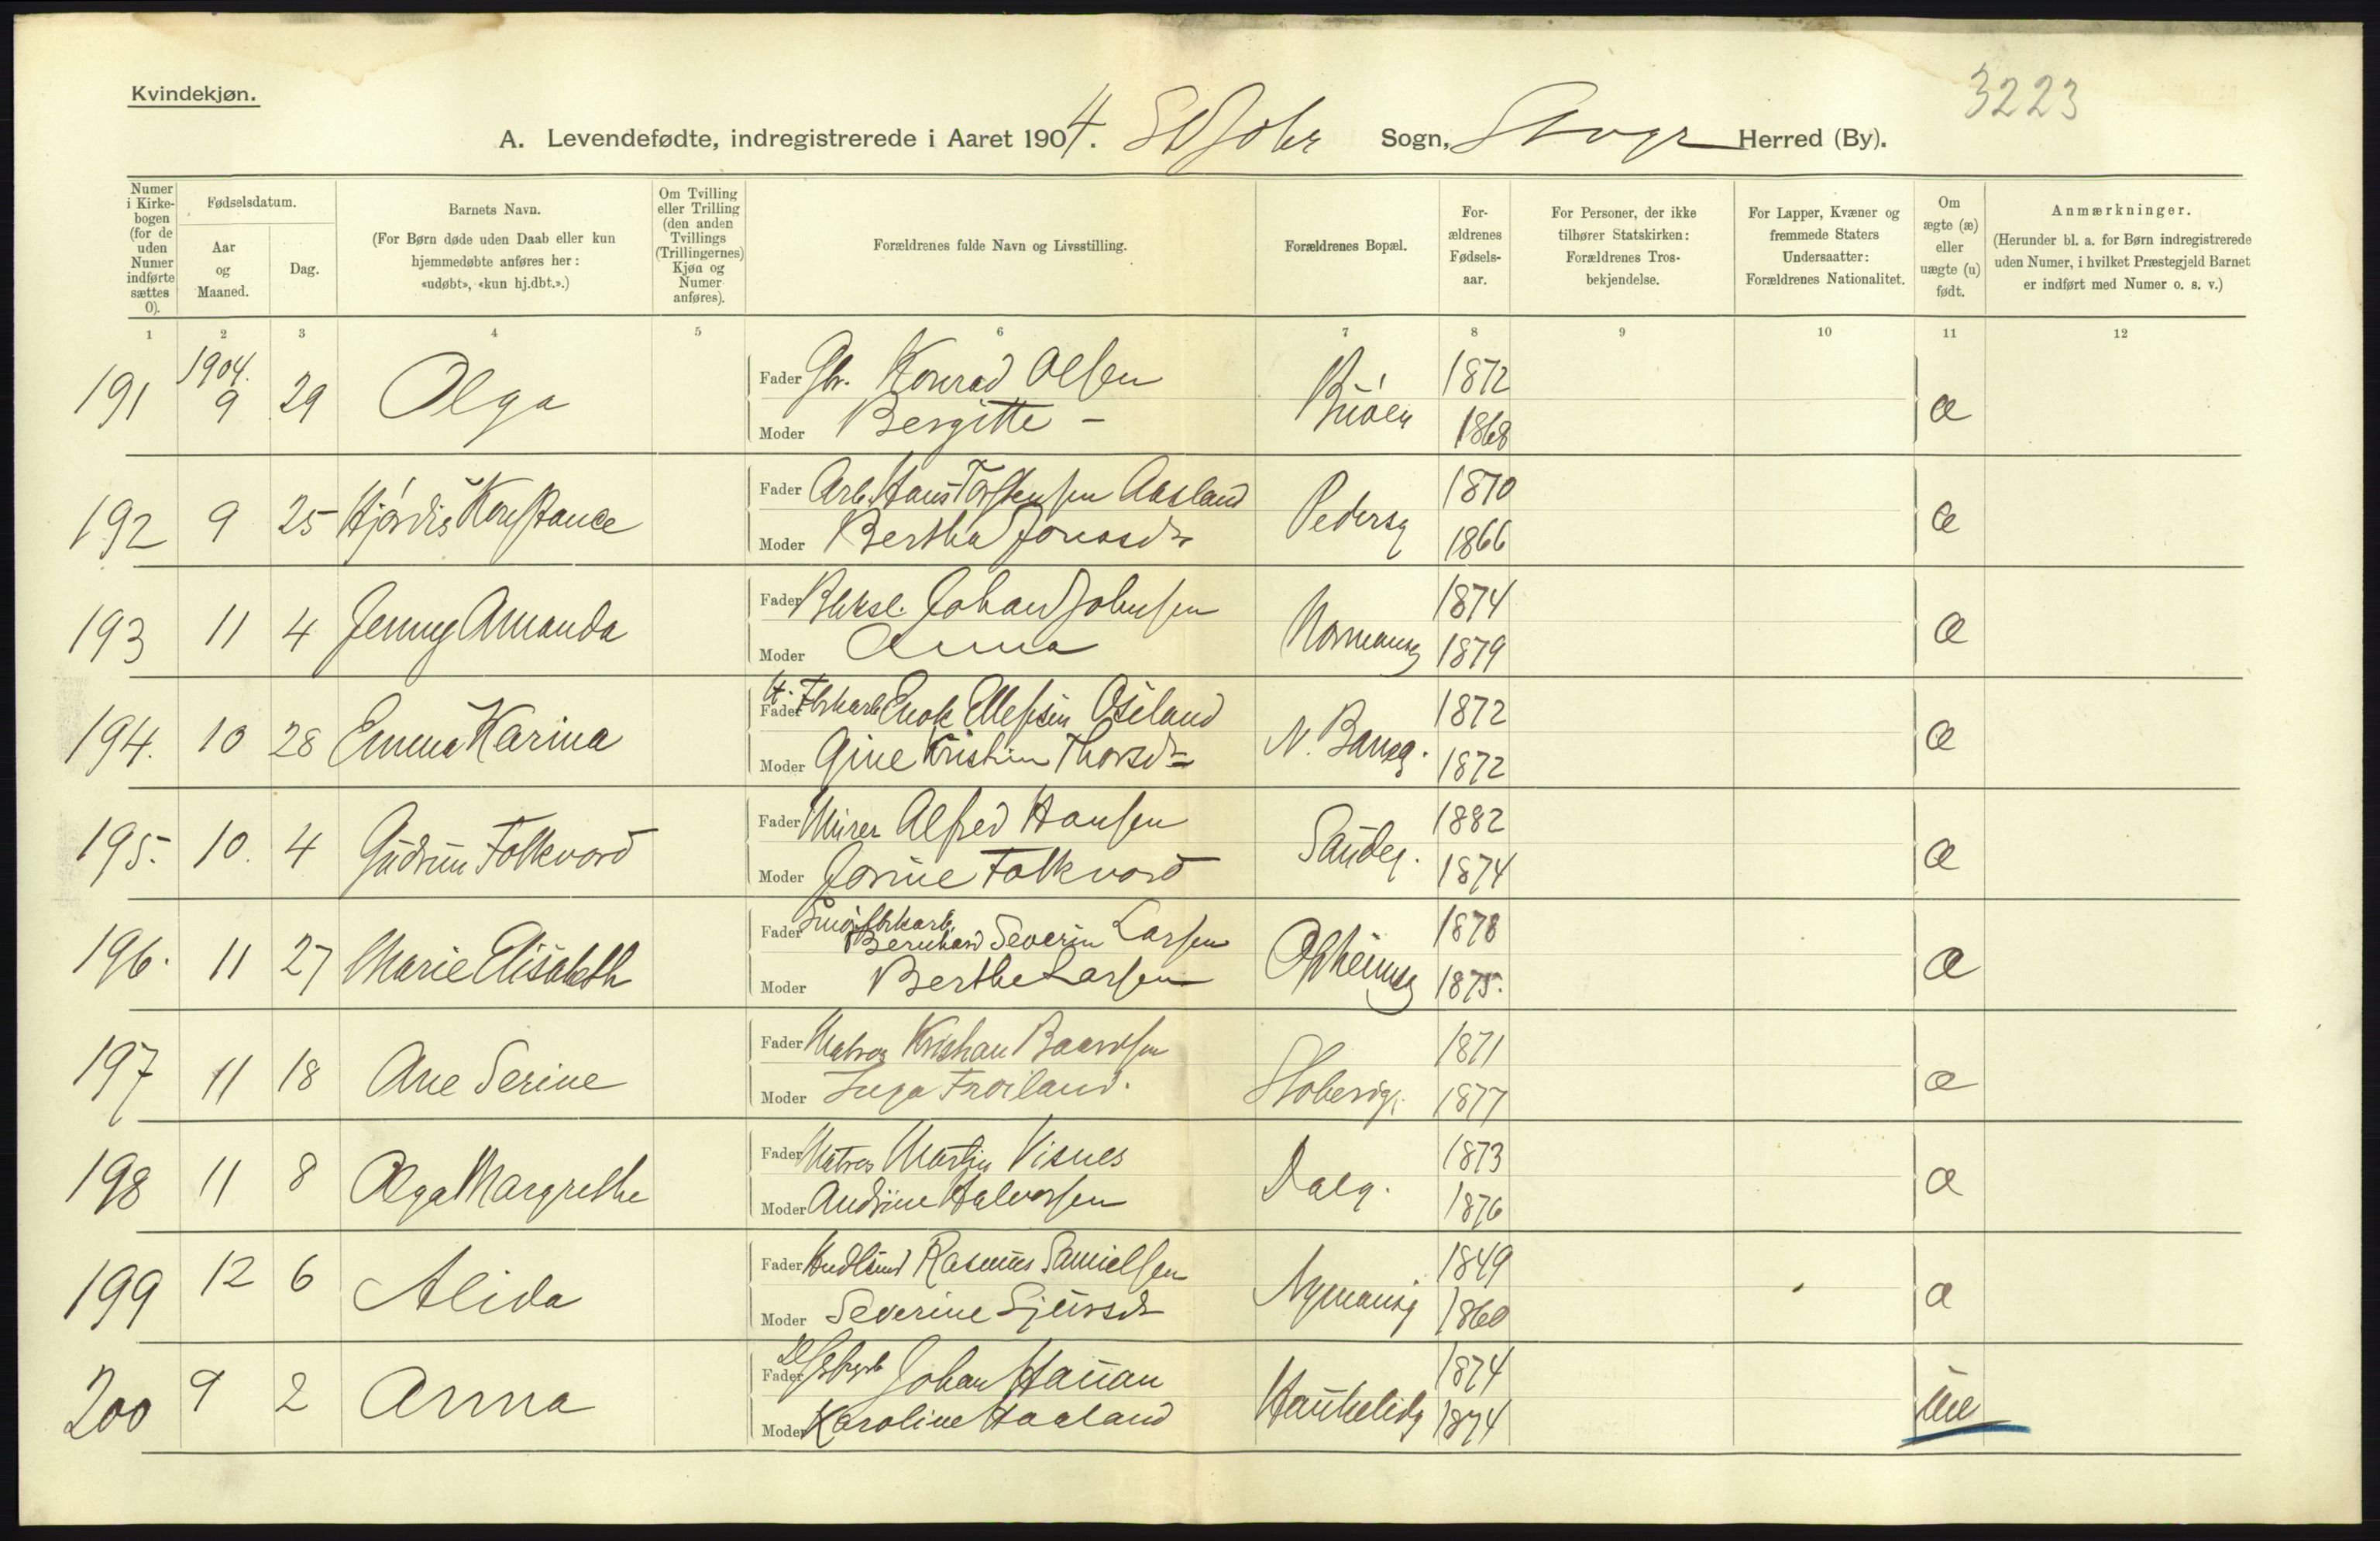 Kvindekjøn.
3223
A. Levendefødte, indregistrerede i Aaret 1904. St Joh Sogn, Stvgr Herred (By).
Numer i Kirkebogen (for de uden Numer indførte sættes 0).
Fødselsdatum.
Aar og Maaned.
Dag.
Barnets Navn.
(For Børn døde uden Daab eller kun hjemmedøbte anføres her: «udøbt», «kun hj.dbt.».)
Om Tvilling eller Trilling (den anden Tvillings (Trillingernes) Kjøn og Numer anføres).
Forældrenes fulde Navn og Livsstilling.
Forældrenes Bopæl.
Forældrenes Fødselsaar.
For Personer, der ikke tilhører Statskirken: Forældrenes Trosbekjendelse.
For Lapper, Kvæner og fremmede Staters Undersaatter: Forældrenes Nationalitet.
Om ægte (æ) eller uægte (u) født.
Anmærkninger.
(Herunder bl. a. for Børn indregistrerede uden Numer, i hvilket Præstegjeld Barnet er indført med Numer o. s. v.)
1 2 3 4 5 6 7 8 9 10 11 12
191 1904. 9 29 Olga Fader Gbr. Konrad Olsen Buøen 1872 æ
Moder Bergitte - 1868
192 9 25 Hjørdis Konstance Fader Arb. Hans Torstensen Aasland Pedersg 1870 æ
Moder Bertha Jonasdr 1866
193 11 4 Jenny Amanda Fader Bliksl. Johan Johnsen Normansg 1874 æ
Moder Anna 1879
194. 10 28 Emma Karina Fader Enok Ellefsen Øseland N. Baneg. 1872 æ
Moder Gine Kristine Thorsdr 1872
195. 10. 4 Gudrun Folkvord Fader Murer Alfred Hansen Sandeg. 1882 æ
Moder Jorine Folkvord 1874
196. 11 27 Marie Elisabeth Fader Bernhard Severin Larsen Opheimsg 1878 æ
Moder Berthe Larsen 1875.
197 11 18 Ane Serine Fader Matros Kristian Baardsen 1871 æ
Moder Inga Frøiland. 1877
198 11 8 Olga Margrethe Fader Matros Martin Visnes Dalg. 1873 æ
Moder Andrine Halvorsen 1876
199 12 6 Alida Fader Rasmus Samielsen Nymansg 1849 æ
Moder Severine Sjursdr 1860
200 9 2 Anna Fader Johan Hauan Haukelidg 1874 uæ
Moder Karoline Haaland 1874